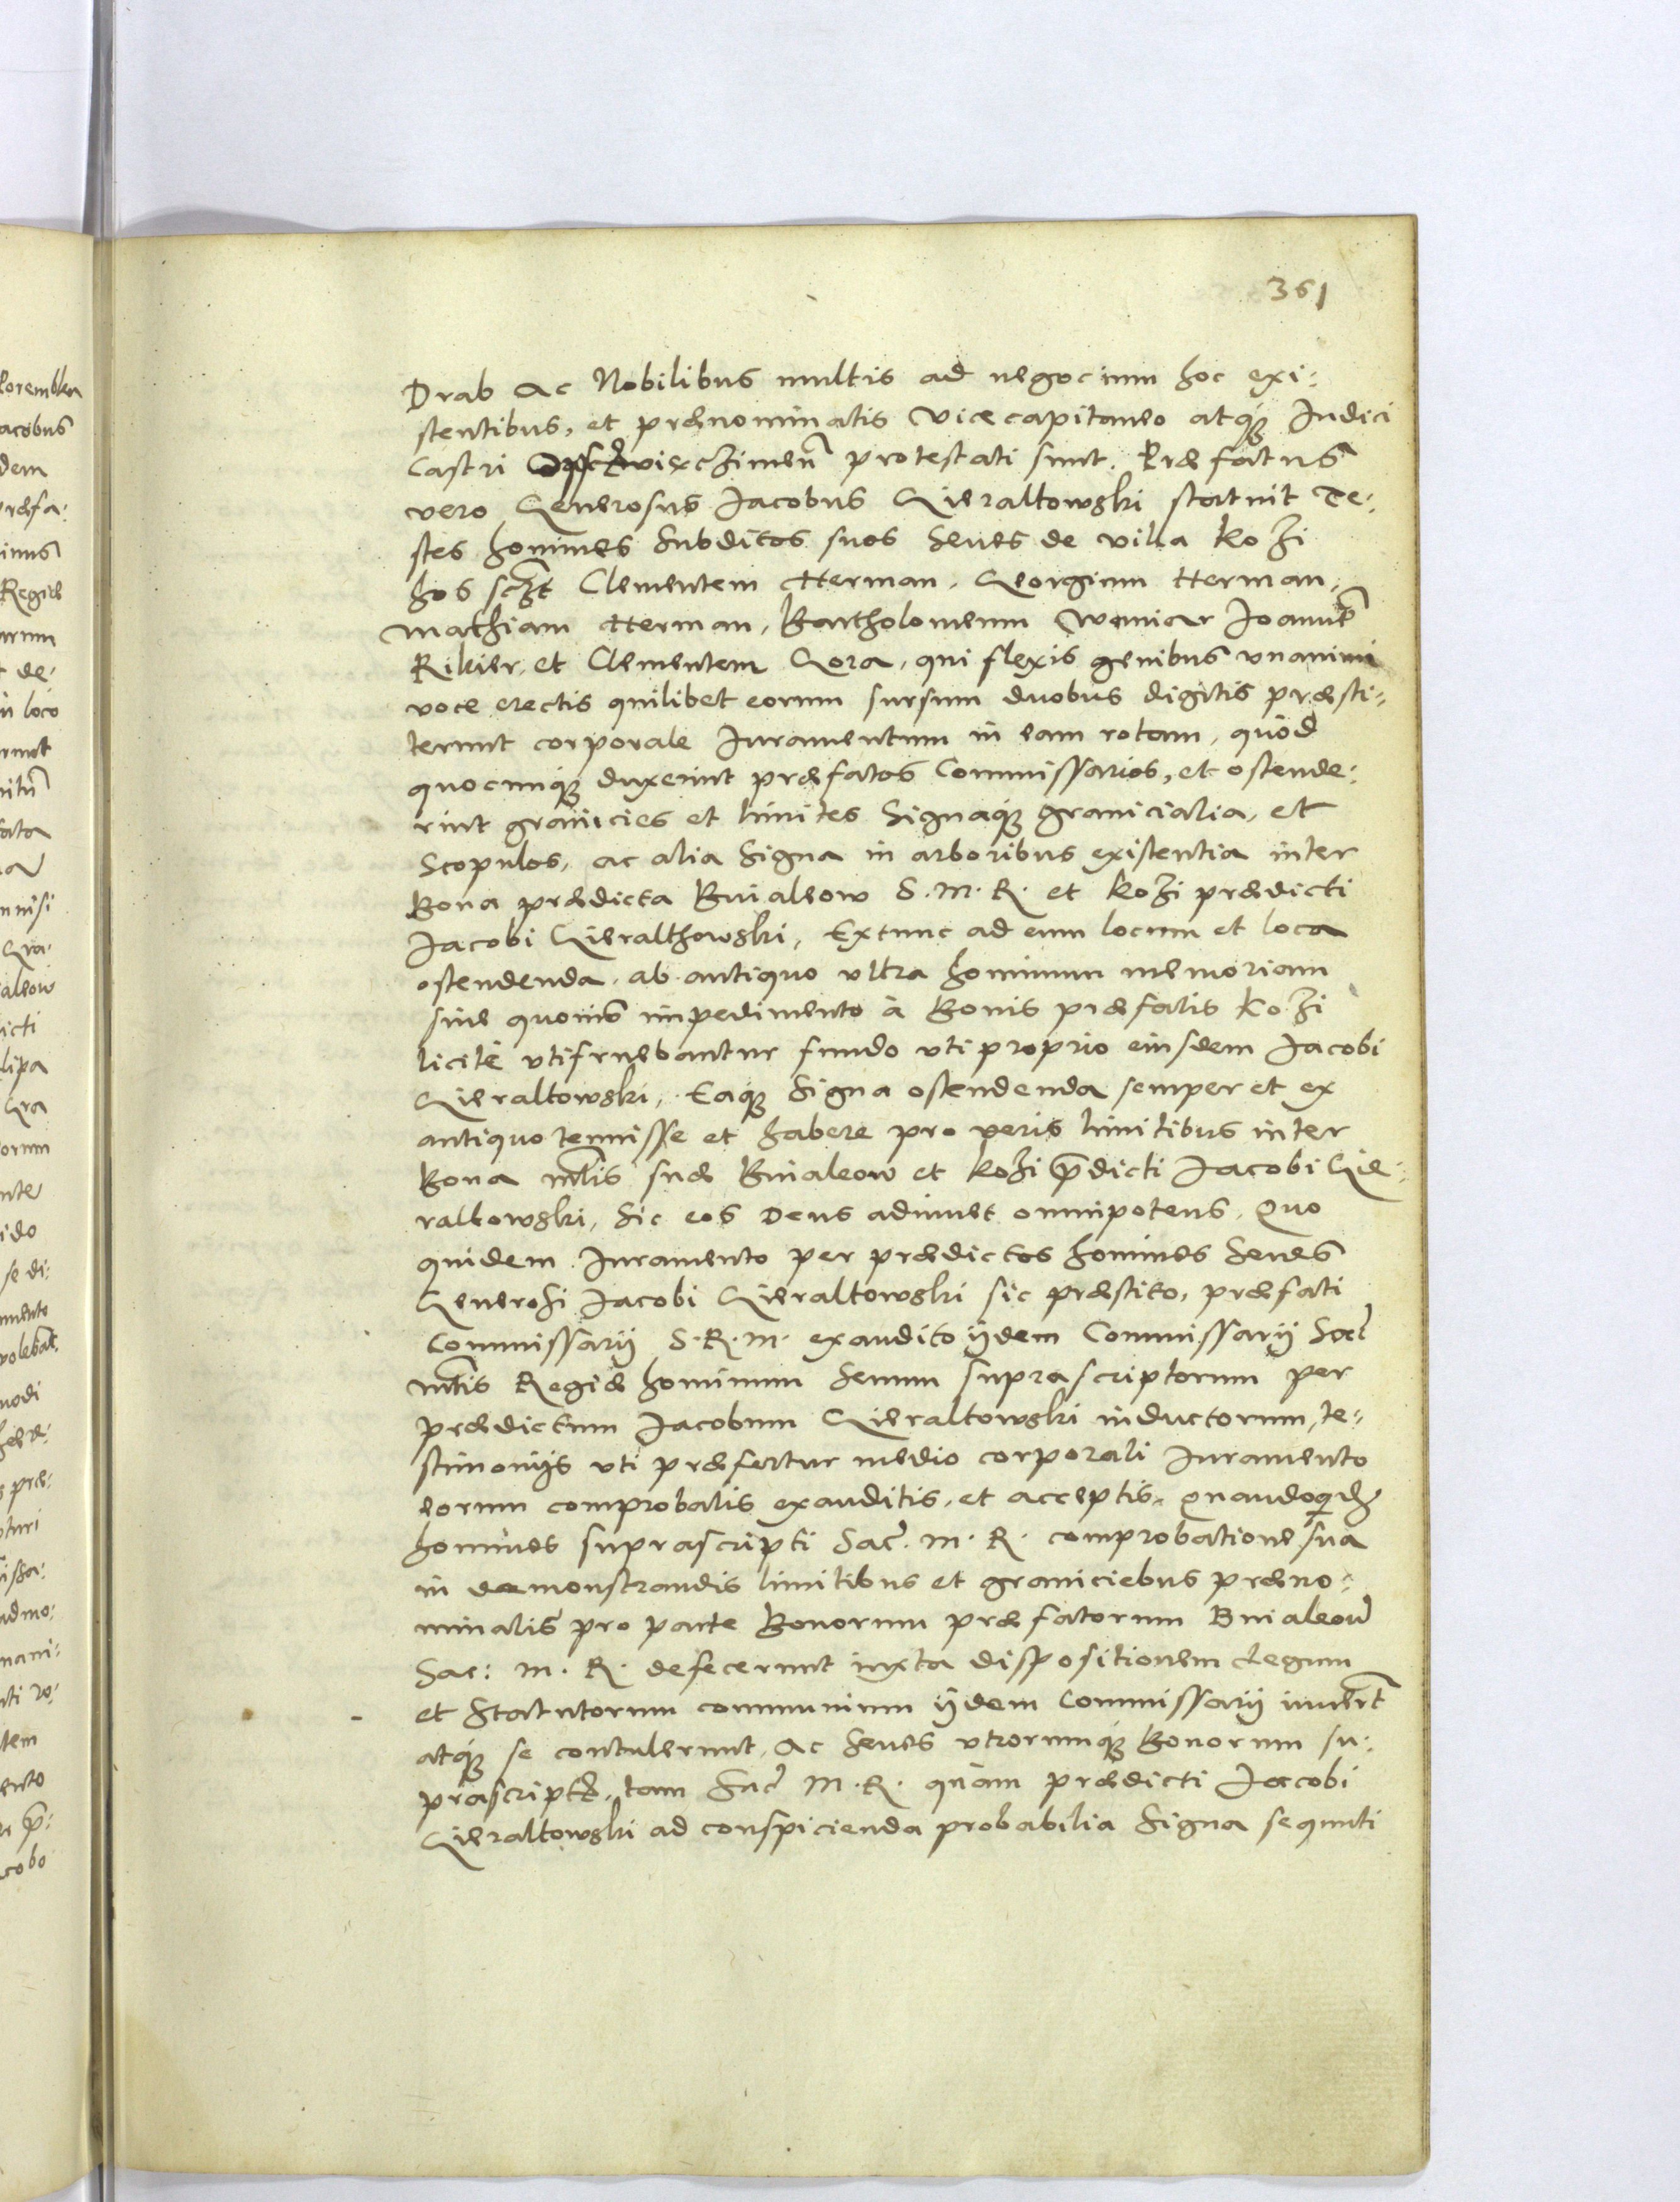 361
Drab ac Nobilibus multis ad negocium hoc exi:
stentibus, et prænominatis Vicecapitaneo atq́ꝫ Iudici
Castri protestati sunt. Præfatus
vero Generosus Iacobus Gieraltowski statuit Te:
stes homines Subditos suos Senes de villa Kozi
hos Clementem Herman, Georgium Herman,
Mathiam Herman, Bartholomeum Ioannē
Rikier, et Clementem Gora, qui flexis genibus vnanimi
voce erectis quilibet eorum sursum duobus digitis præsti:
terunt corporale Iuramentum in eam rotam, quòd
quocunq́ꝫ duxerint præfatos Commissarios, et ostende:
rint granicies et limites Signaq́ꝫ granicialia, et
Scopulos, ac alia Signa in arboribus existentia inter
Bona prædicta Buialeow S. M. R. et Kozi prædicti
Iacobi Gieralthowski, Extunc ad eum locum et loca
ostendenda, ab antiquo vltra hominum memoriam
sine quouis impedimento à Bonis præfatis Kozi
licitè vtifruebantur fundo vti proprio eiusdem Iacobi
Gieraltowski, Eaq́ꝫ Signa ostendenda semper et ex
antiquo tenuisse et habere pro veris limitibus inter
Bona Mtis suæ Buialeow et Kozi p̄dicti Iacobi Gie:
raltowski, Sic eos Deus adiuuet omnipotens. Quo
quidem Iuramento per prædictos homines Senes
Generosi Iacobi Gieraltowski sic præstito, præfati
Commissarij S. R. M. exaudito ijdem Commissarij Sac̄
Mtis Regiæ hominum Senum suprascriptorum per
prædictum Iacobum Gieraltowski inductorum, te:
stimonijs vti præfertur medio corporali Iuramento
eorum comprobatis exauditis, et acceptis,
homines suprascripti Sac̄. M. R. comprobatione sua
in demonstrandis limitibus et graniciebus præno:
minatis pro parte Bonorum præfatorum Buialeow
Sac: M. R. defecerunt iuxta dispositionem Legum
et Statutorum communium ijdem Commissarij
atq́ꝫ se contulerunt, Ac Senes vtrorumq́ꝫ Bonorum su:
prascript. tam Sac̄ M. R. quàm prædicti Iacobi
Gieraltowski ad conspicienda probabilia Signa sequuti